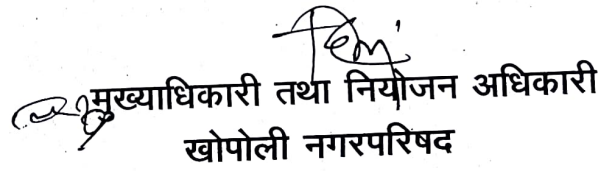 मुख्याधिकारी तथा नियोजन अधिकारी
खोपोली नगरपरिषद